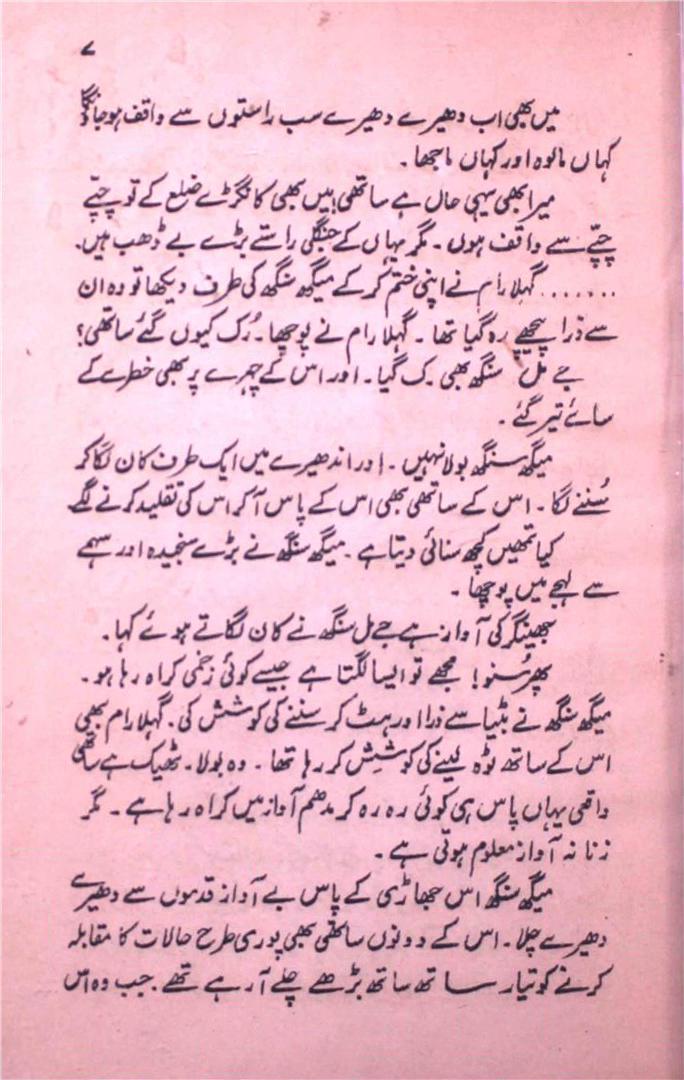 ۷
میں بھی اب دھیرے دھیرے سب راستوں سے واقف ہو جاؤنگا
کہاں مالوہ اور کہاں ماجھا۔
میرا بھی یہی حال ہے ساتھی! میں بھی کانگڑے ضلع کے تو چپّے
چپّے سے واقف ہوں۔ مگر یہاں کے جنگلی راستے بڑے بے ڈھب ہیں۔
....... گہلا رام نے اپنی ختم کر کے میگھ سنگھ کی طرف دیکھا تو وہ ان
سے ذرا پیچھے رہ گیا تھا۔ گہلا رام نے پوچھا۔ رُک کیوں گئے ساتھی؟
جے مل سنگھ بھی رک گیا۔ اور اس کے چہرے پر بھی خطرے کے
سائے تیر گئے۔
میگھ سنگھ بولا نہیں۔ اور اندھیرے میں ایک طرف کان لگا کر
سُننے لگا۔ اس کے ساتھی بھی اس کے پاس آ کر اس کی تقلید کرنے لگے
کیا تمھیں کچھ سنائی دیتا ہے۔ میگھ سنگھ نے بڑے سنجیدہ اور سہمے
سے لہجے میں پوچھا۔
جھینگر کی آواز ہے جے مل سنگھ نے کان لگاتے ہوئے کہا۔
پھر سُنو! مجھے تو ایسا لگتا ہے جیسے کوئی زخمی کراہ رہا ہو۔
میگھ سنگھ نے بٹیا سے ذرا اور ہٹ کر سننے کی کوشش کی۔ گہلا رام بھی
اس کے ساتھ ٹوہ لینے کی کوشِش کر رہا تھا۔ وہ بولا۔ ٹھیک ہے ساتھی
واقعی یہاں پاس ہی کوئی رہ رہ کر مدھم آواز میں کراہ رہا ہے۔ مگر
زنانہ آواز معلوم ہوتی ہے۔
میگھ سنگھ اس جھاڑی کے پاس بے آواز قدموں سے دھیرے
دھیرے چلا۔ اس کے دونوں ساتھی بھی پوری طرح حالات کا مقابلہ
کرنے کو تیار ساتھ ساتھ بڑھے چلے آ رہے تھے۔ جب وہ اس